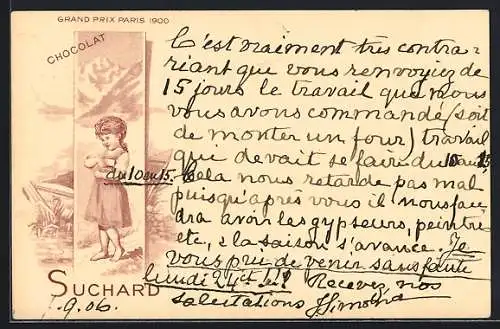 GRAND PRIX PARIS 1900
CHOCOLAT
C'est vraiment très contra-
riant que vous renvoyiez de
15 jours le travail que nous
vous avons commandé (soit
de monter un four) travail
qui devait se faire du 10 au 15
du 10 au 15. Cela nous retarde pas mal
puisqu'après vous il nous fau
dra avoir les gypseurs, peintre
etc., & la saison s'avance. Je
vous prie de venir sans faute
lundi 24 ct !! Recevez nos
salutations
SUCHARD
9.06.